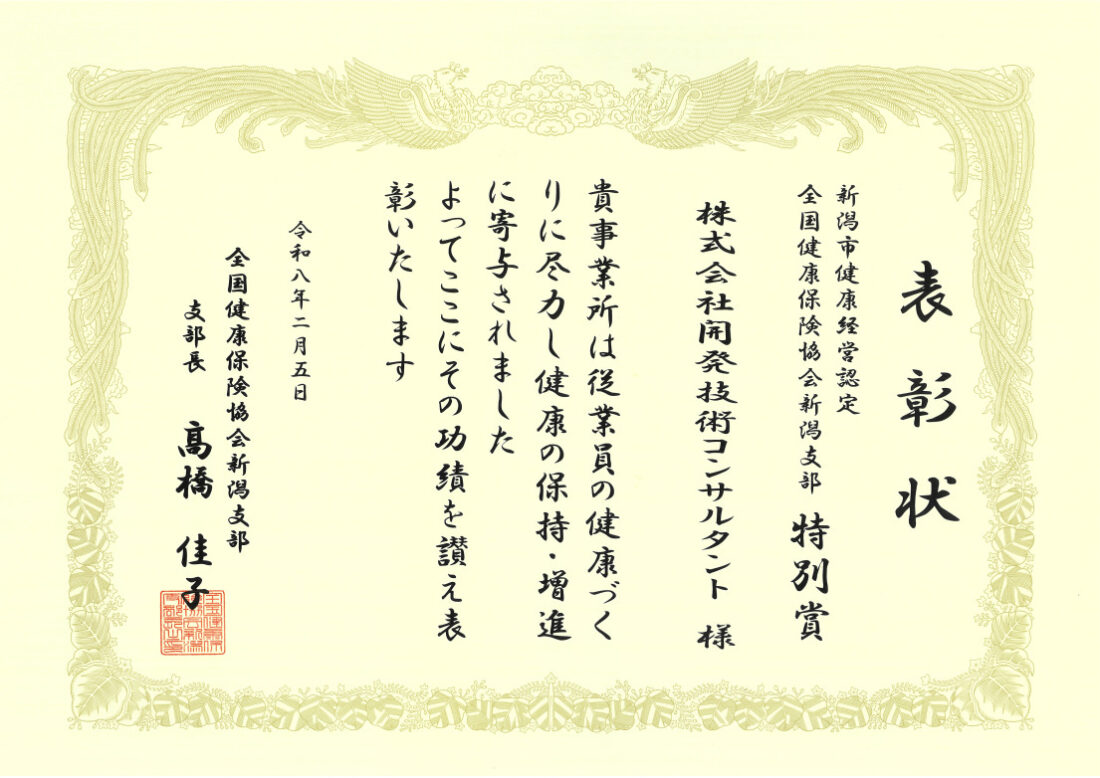 表彰状
新潟市健康経営認定
全国健康保険協会新潟支部 特別賞
株式会社開発技術コンサルタント 様
貴事業所は従業員の健康づく
りに尽力し健康の保持・増進
に寄与されました
よってここにその功績を讃え表
彰いたします
令和八年二月五日
全国健康保険協会新潟支部
支部長 髙橋 佳子